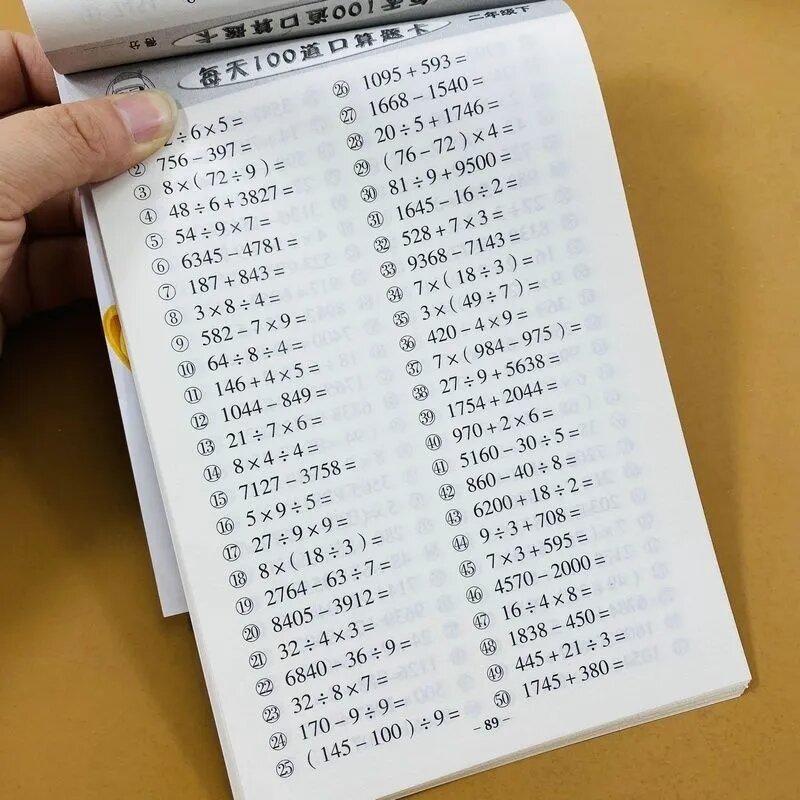 每天100道口算题卡
二年级下
得分
每天100道口算题卡
二年级下
2÷6×5=
② 756-397=
③ 8×(72÷9)=
④ 48÷6+3827=
⑤ 54÷9×7=
⑥ 6345-4781=
⑦ 187+843=
⑧ 3×8÷4=
⑨ 582-7×9=
⑩ 64÷8÷4=
⑪ 146+4×5=
⑫ 1044-849=
⑬ 21÷7×6=
⑭ 8×4÷4=
⑮ 7127-3758=
⑯ 5×9÷5=
⑰ 27÷9×9=
⑱ 8×(18÷3)=
⑲ 2764-63÷7=
⑳ 8405-3912=
㉑ 32÷4×3=
㉒ 6840-36÷9=
㉓ 32÷8×7=
㉔ 170-9÷9=
㉕ (145-100)÷9=
㉖ 1095+593=
㉗ 1668-1540=
㉘ 20÷5+1746=
㉙ (76-72)×4=
㉚ 81÷9+9500=
㉛ 1645-16÷2=
㉜ 528+7×3=
㉝ 9368-7143=
㉞ 7×(18÷3)=
㉟ 3×(49÷7)=
㊱ 420-4×9=
㊲ 7×(984-975)=
㊳ 27÷9+5638=
㊴ 1754+2044=
㊵ 970+2×6=
㊶ 5160-30÷5=
㊷ 860-40÷8=
㊸ 6200+18÷2=
㊹ 9÷3+708=
㊺ 7×3+595=
㊻ 4570-2000=
㊼ 16÷4×8=
㊽ 1838-450=
㊾ 445+21÷3=
㊿ 1745+380=
-89-